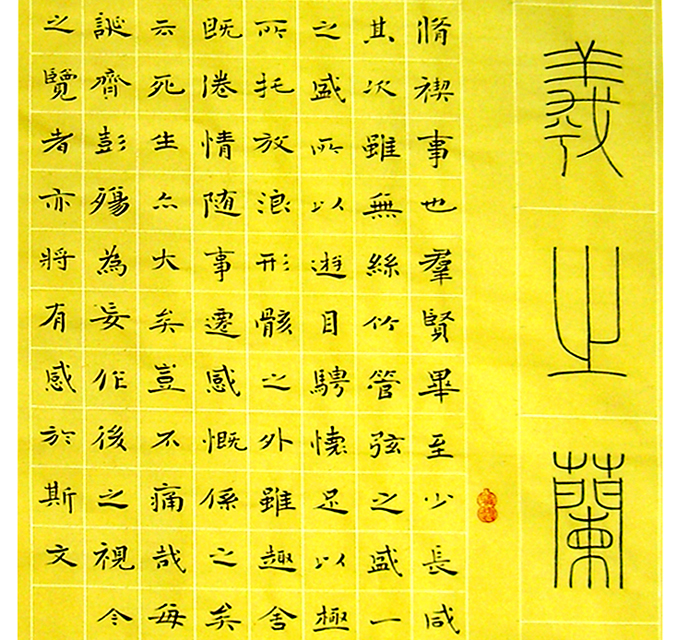 羲之蘭
脩禊事也羣賢畢至少長咸
其次雖無絲竹管弦之盛一
之盛所以遊目騁懷足以極
所托放浪形骸之外雖趣舍
既倦情随事遷感慨係之矣
云死生亦大矣豈不痛哉每
誕齊彭殤為妄作後之視今
之覽者亦將有感於斯文